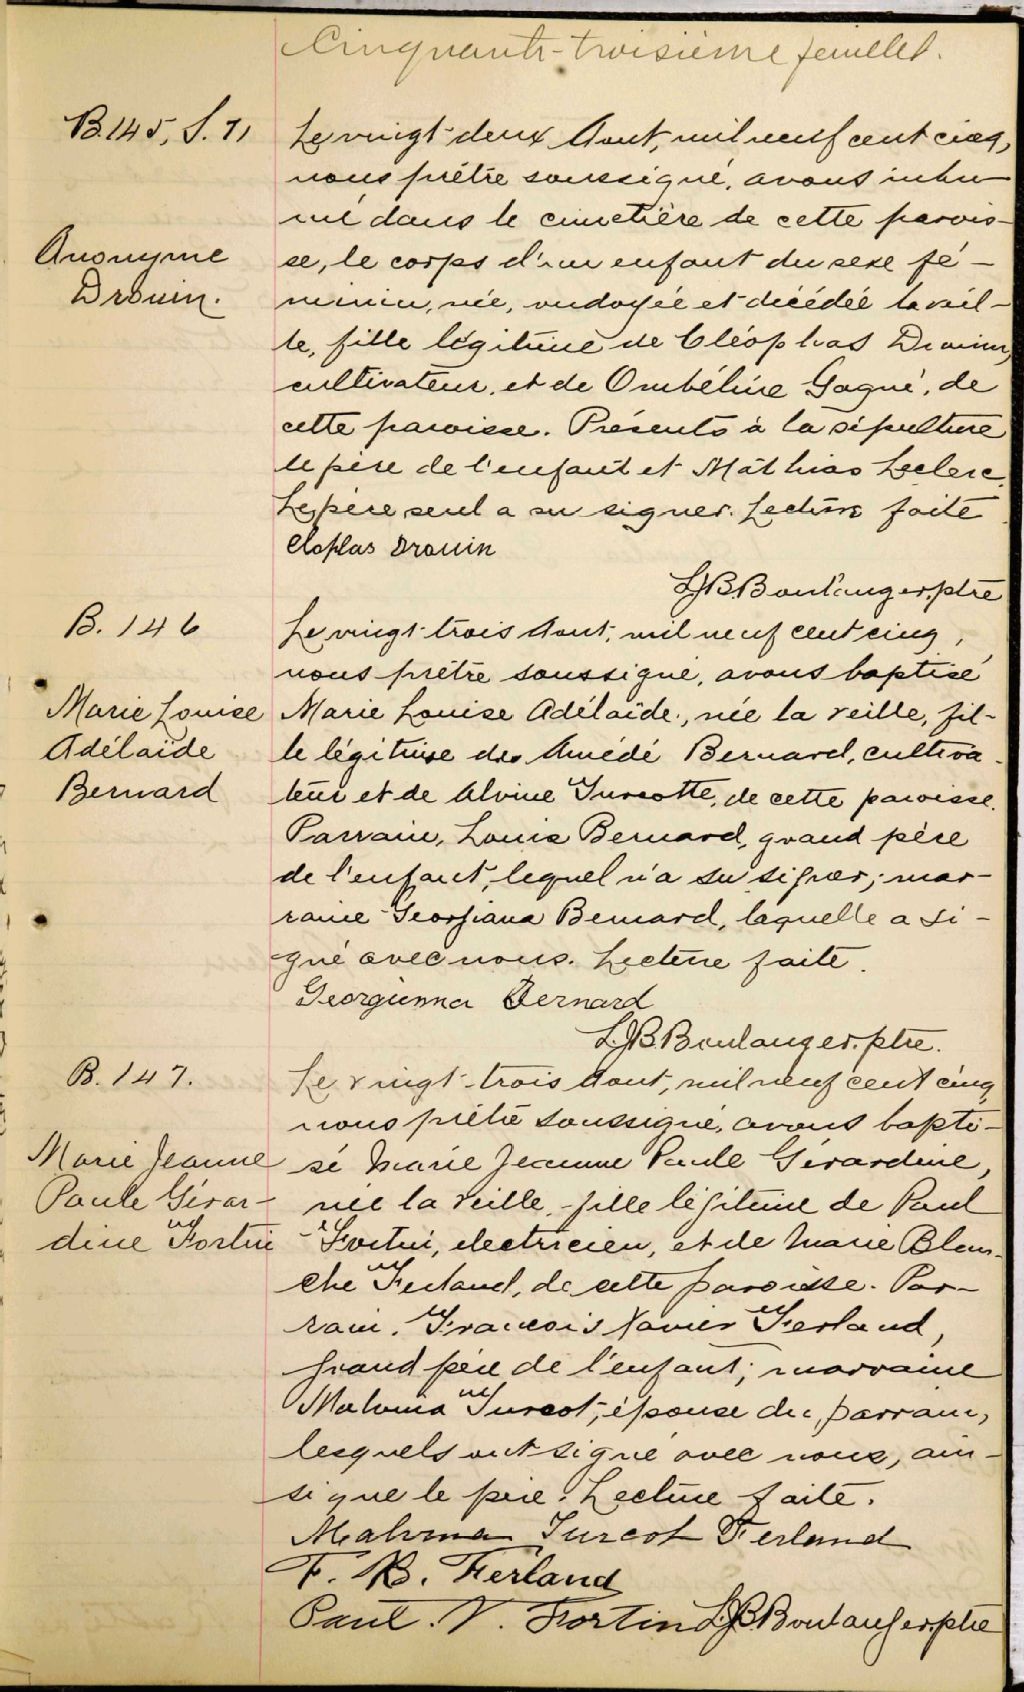 Cinquante-troisième feuillet.
B.145, S.71
Anonyme
Drouin.
Le vingt-deux Aout, mil neuf cent cinq,
nous prêtre soussigné, avons inhu-
mé dans le cimetière de cette parois-
se, le corps d'un enfant du sexe fé-
minin, née, ondoyée et décédée la veil-
le, fille légitime de Cléophas Drouin,
cultivateur, et de Ombéline Gagné, de
cette paroisse. Présents à la sépulture
le père de l'enfant et Mathias Leclerc.
Le père seul a su signer. Lecture faite.
Cloflas Drouin
L.J.B.Boulanger.ptre
B. 146
Marie Louise
Adélaïde
Bernard
Le vingt-trois Aout, mil neuf cent cinq,
nous prêtre soussigné, avons baptisé
Marie Louise Adélaïde, née la veille, fil-
le légitime de Amédé Bernard, cultiva-
teur et de Alvine Turcotte, de cette paroisse.
Parrain, Louis Bernard, grand père
de l'enfant, lequel n'a su signer; mar-
raine Georgiana Bernard, laquelle a si-
gné avec nous. Lecture faite.
Georgienna Bernard
L.J.B.Boulanger.ptre.
B. 147.
Marie Jeanne
Paule Gérar-
dine Fortin
Le vingt-trois Aout, mil neuf cent cinq
nous prêtre soussigné, avons bapti-
sé Marie Jeanne Paule Gérardine,
née la veille, fille légitime de Paul
Fortin, electricien, et de Marie Blan-
che Ferland, de cette paroisse. Par-
rain, Francois Xavier Ferland,
grand père de l'enfant; marraine
Malvina Turcot, épouse du parrain,
lesquels ont signé avec nous, ain-
si que le père. Lecture faite.
Malvina Turcot Ferland
F. X. Ferland
Paul. V. Fortin L.J.B.Boulanger.ptre